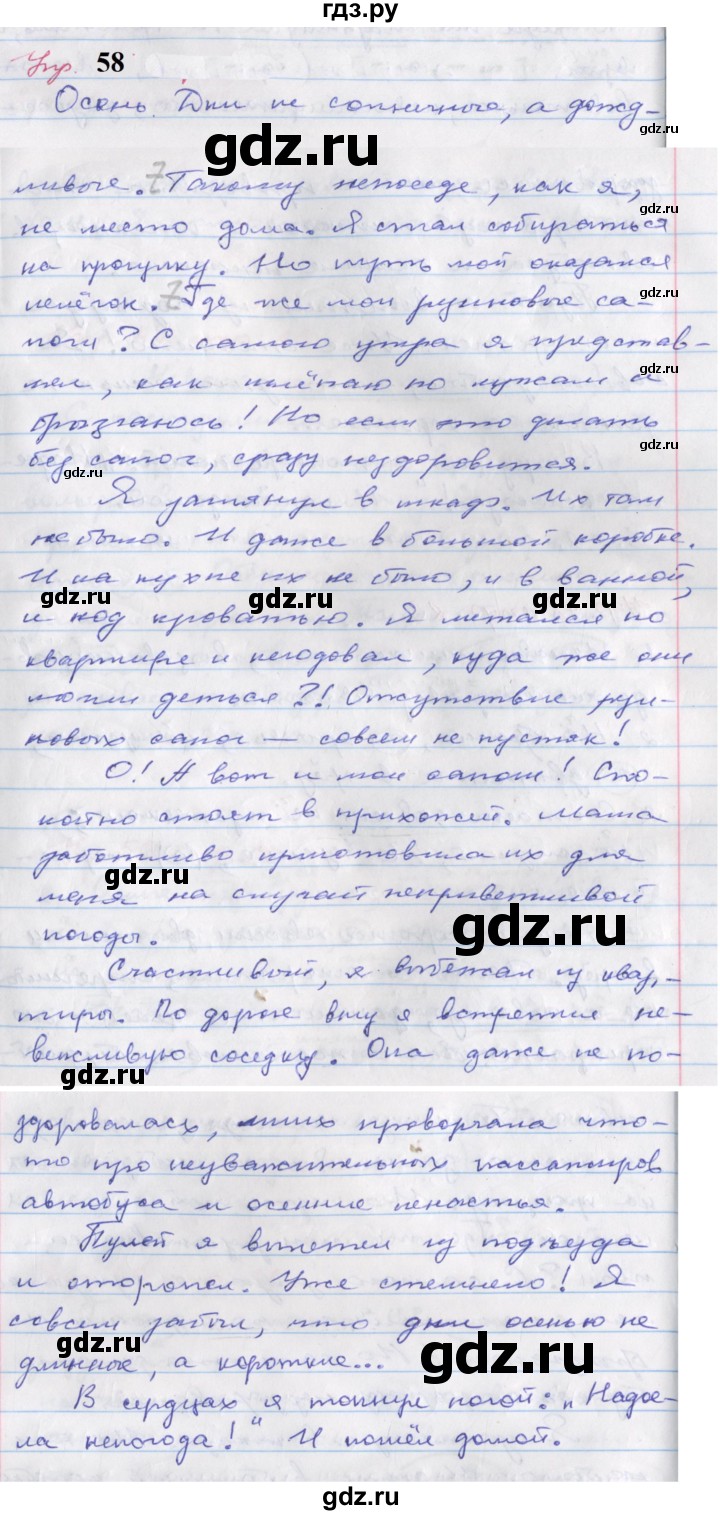 гдз.ру
Упр. 58
Осень. Дни не солнечные, а дожд-
gdz.ru
ливые. Z Такому непоседе, как я,
не место дома. Я стал собираться
gdz.ru
на прогулку. Но путь мой оказался
нелёгок. Z Где же мои резиновые са-
gdz.ru
поги? С самого утра я представ-
лял, как шлёпаю по лужам и
gdz.ru
брызгаюсь! Но если это делать
gdz.ru
без сапог, сразу нездоровится.
gdz.ru
Я заглянул в шкаф. Их там
не было. И даже в большой коробке.
gdz.ru
И на кухне их не было, и в ванной,
gdz.ru gdz.ru gdz.ru
и под кроватью. Я метался по
квартире и негодовал, куда же они
могли деться?! Отсутствие рези-
gdz.ru
новых сапог — совсем не пустяк!
О! А вот и мои сапоги! Спо-
gdz.ru
койно стоят в прихожей. Мама
заботливо приготовила их для
gdz.ru
меня на случай неприветливой
gdz.ru
погоды.
Счастливый, я выбежал из квар-
тиры. По дороге вниз я встретил не-
вежливую соседку. Она даже не по-
gdz.ru
здоровалась, лишь проворчала что-
то про неуважительных пассажиров
gdz.ru
автобуса и осенние ненастья.
Пулей я вылетел из подъезда
и оторопел. Уже стемнело! Я
совсем забыл, что дни осенью не
gdz.ru gdz.ru
длинные, а короткие...
В сердцах я топнул ногой: „Надое-
ла непогода!“ И пошёл домой.
gdz.ru
гдз.ру